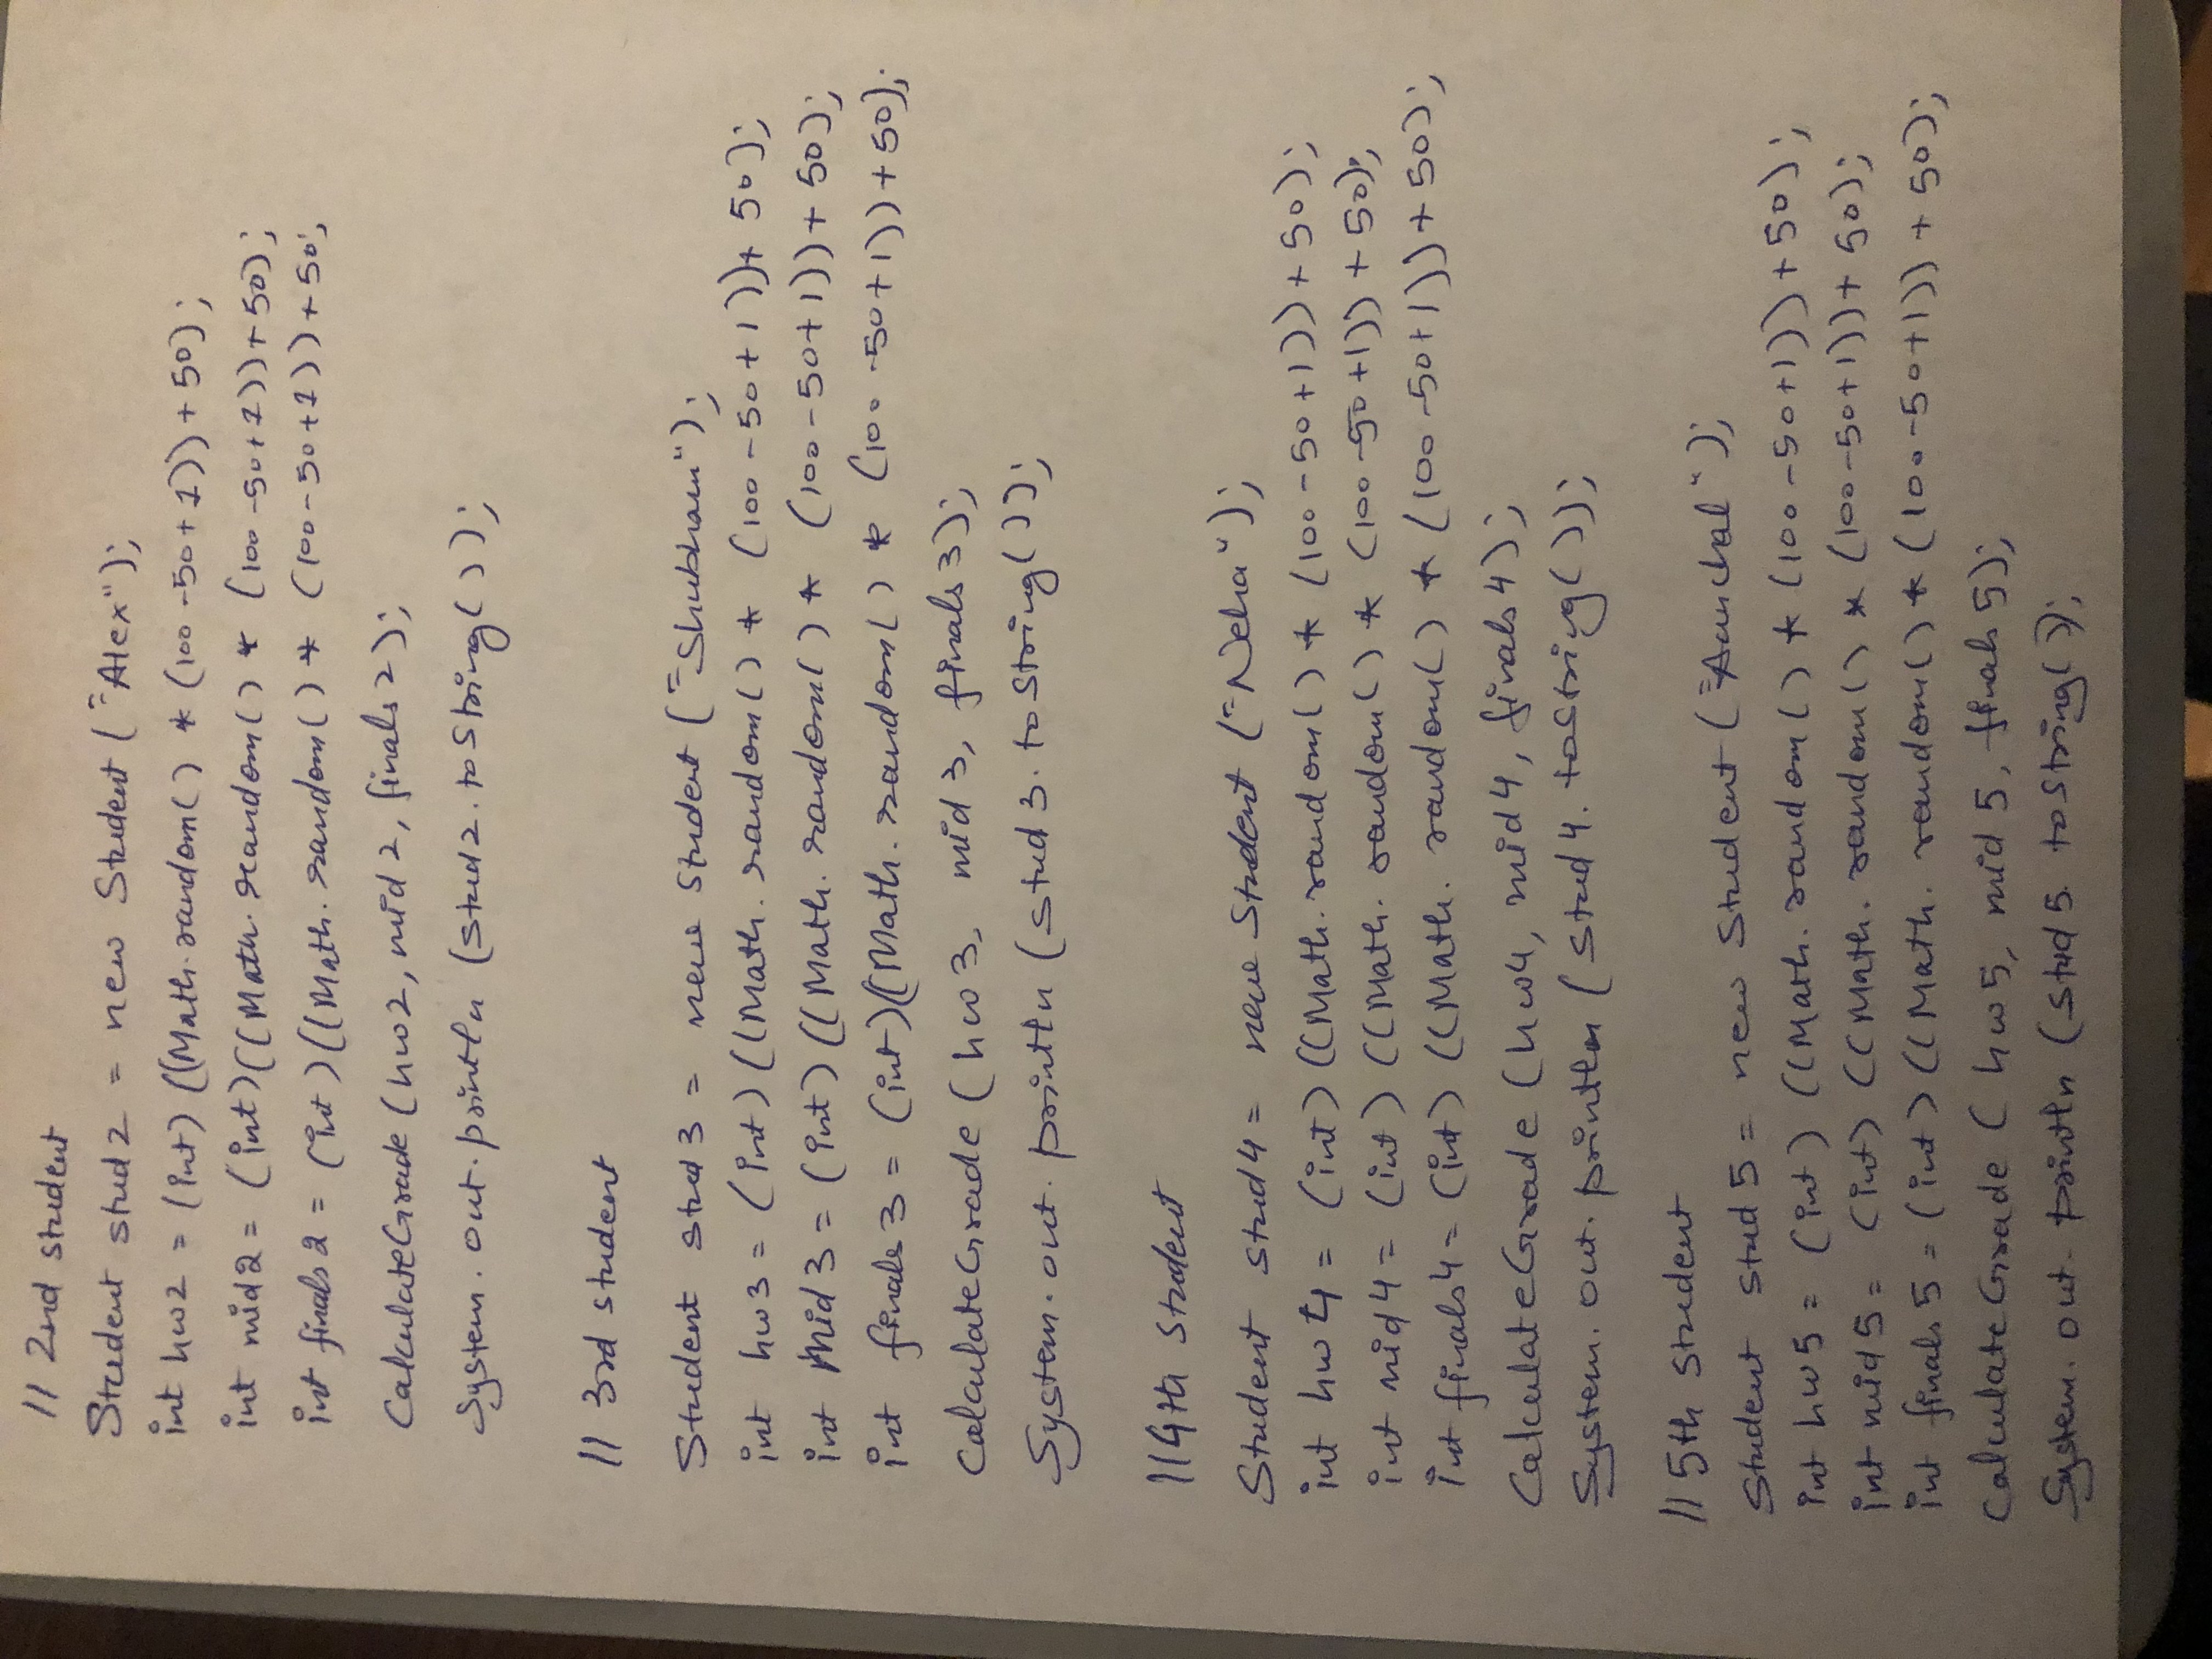 // 2nd student
Student stud2 = new Student ("Alex");
int hw2 = (int) ((Math.random() * (100-50+1))+50);
int mid2 = (int)((Math.random() * (100-50+1))+50);
int finals2 = (int)((Math.random() * (100-50+1))+50;
CalculateGrade (hw2, mid2, finals2);
System.out.println (stud2.toString());
// 3rd student
Student stud3 = new Student ("Shubham");
int hw3 = (int) ((Math.random() * (100-50+1))+50);
int Mid3 = (int) ((Math.random() * (100-50+1))+50);
int finals3 = (int)((Math.random() * (100-50+1))+50);
CalculateGrade (hw3, mid3, finals3);
System.out.println (stud3.toString());
//4th Student
Student stud4 = new Student ("Neha");
int hw4 = (int) ((Math.random() * (100-50+1))+50);
int mid4 = (int) ((Math.random() * (100-50+1))+50);
int finals4 = (int) ((Math.random() * (100-50+1))+50);
CalculateGrade (hw4, mid4, finals4);
System.out.println (stud4.toString());
// 5th Student
Student stud5 = new Student ("Aanchal");
int hw5 = (int) ((Math.random() * (100-50+1))+50);
int mid5 = (int) ((Math.random() * (100-50+1))+50);
int finals5 = (int) ((Math.random() * (100-50+1))+50);
CalculateGrade (hw5, mid5, finals5);
System.out.println (stud5.toString());